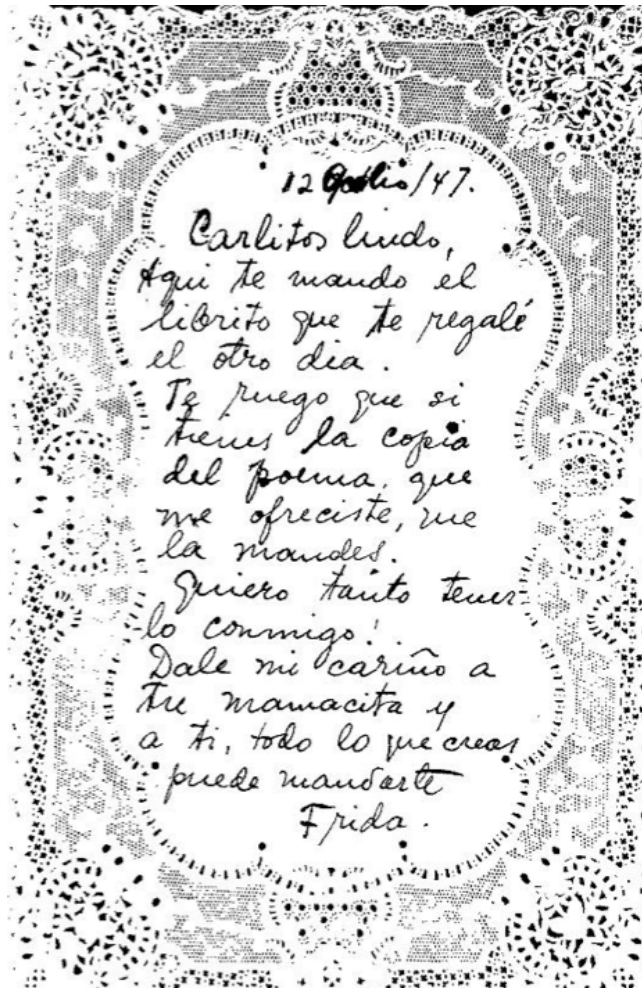 12 /47.
Carlitos lindo,
Aqui te mando el
librito que te regalé
el otro dia.
Te ruego que si
tienes la copia
del poema, que
me ofreciste, me
la mandes.
Quiero tanto tener
lo conmigo!
Dale mi cariño a
tu mamacita y
a ti, todo lo que creas
puede mandarte
Frida.